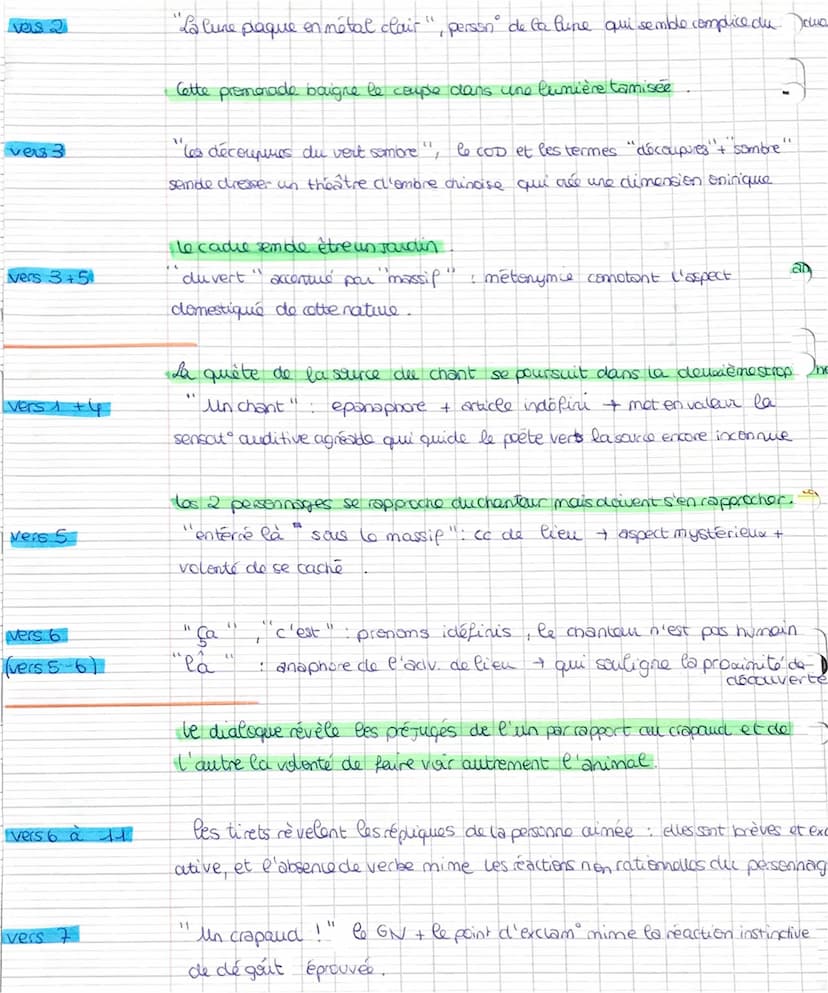 vers 2 "La lune plaque en métal clair", person° de la lune qui semble complice du
Cette promenade baigne le couple dans une lumière tamisée.
vers 3 "les découpures du vert sombre", le COD et les termes "découpures" + "sombre"
semble dresser un théâtre d'ombre chinoise qui crée une dimension onirique
le cadre semble être un jardin.
vers 3 + 5 "du vert" accentué par "massif" : métonymie connotant l'aspect
domestiqué de cette nature.
La quête de la source du chant se poursuit dans la deuxième strop
vers 1 + 4 "Un chant" : epanaphore + article indéfini → met en valeur la
sensat° auditive agréable qui guide le poète vers la source encore inconnue
Les 2 personnages se rapproche du chanteur mais doivent s'en rapprocher.
vers 5 "enterré là" sous le massif" : cc de lieu → aspect mystérieux +
volonté de se caché.
vers 6 "Ça", "c'est" : pronoms idéfinis, le chanteur n'est pas humain
(vers 5-6) "là" : anaphore de l'adv. de lieu → qui souligne la proximité de
découverte
Le dialogue révèle les préjugés de l'un par rapport au crapaud et de
l'autre la volonté de faire voir autrement l'animal.
vers 6 à 11 les tirets révèlent les répliques de la personne aimée : elles sont brèves et exc
ative, et l'absence de verbe mime les réactions non rationnelles du personnag
vers 7 "Un crapaud !" le GN + le point d'exclam° mime la réaction instinctive
de dégoût éprouvée.